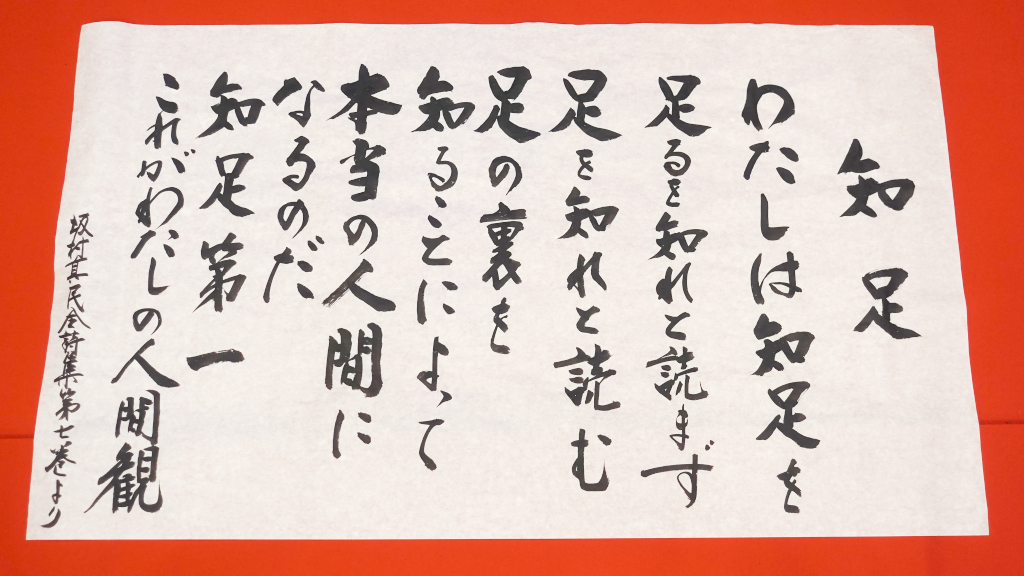 知足
わたしは知足を
足るを知れと読まず
足を知れと読む
足の裏を
知ることによって
本当の人間に
なるのだ
知足第一
これがわたしの人間観
坂村真民全詩集第七巻より